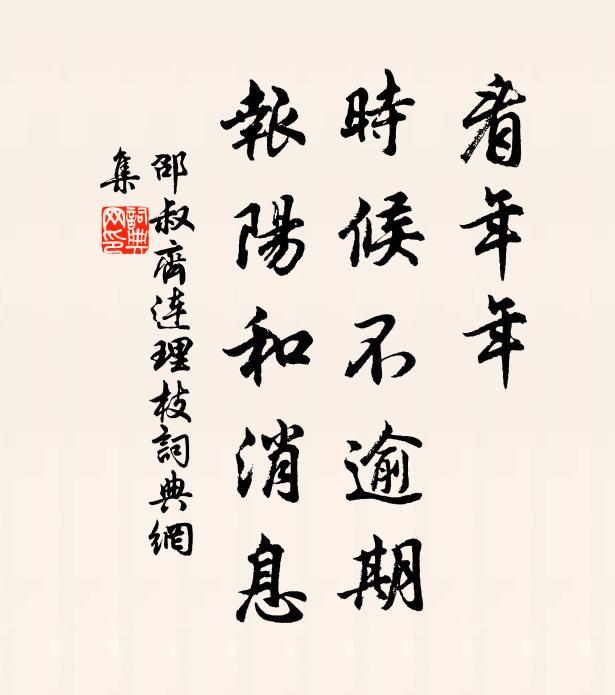 看年年
時候不逾期
報陽和消息
邵叔齊連理枝詞典網
集
詞典
网印